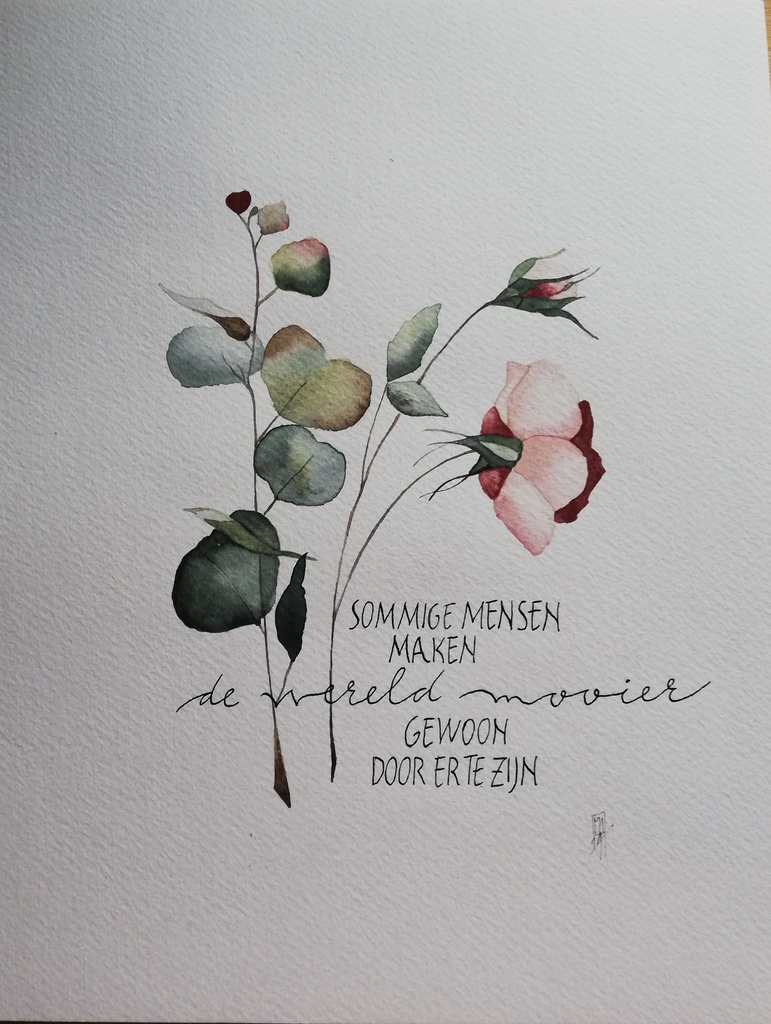 SOMMIGE MENSEN
MAKEN
de wereld mooier
GEWOON
DOOR ER TE ZIJN